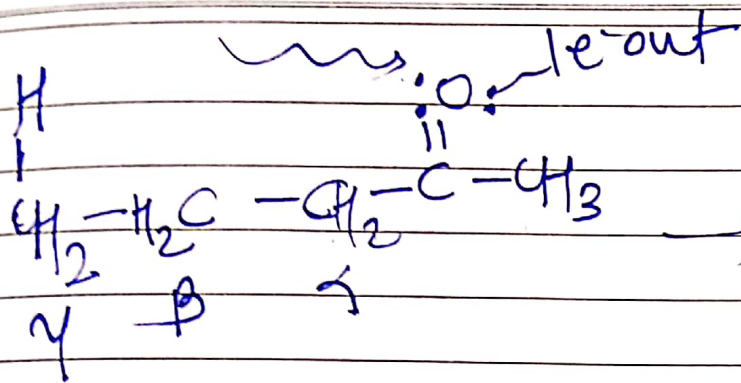 1e-out
:O:
H
||
CH2-H2C-CH2-C-CH3
γ β α